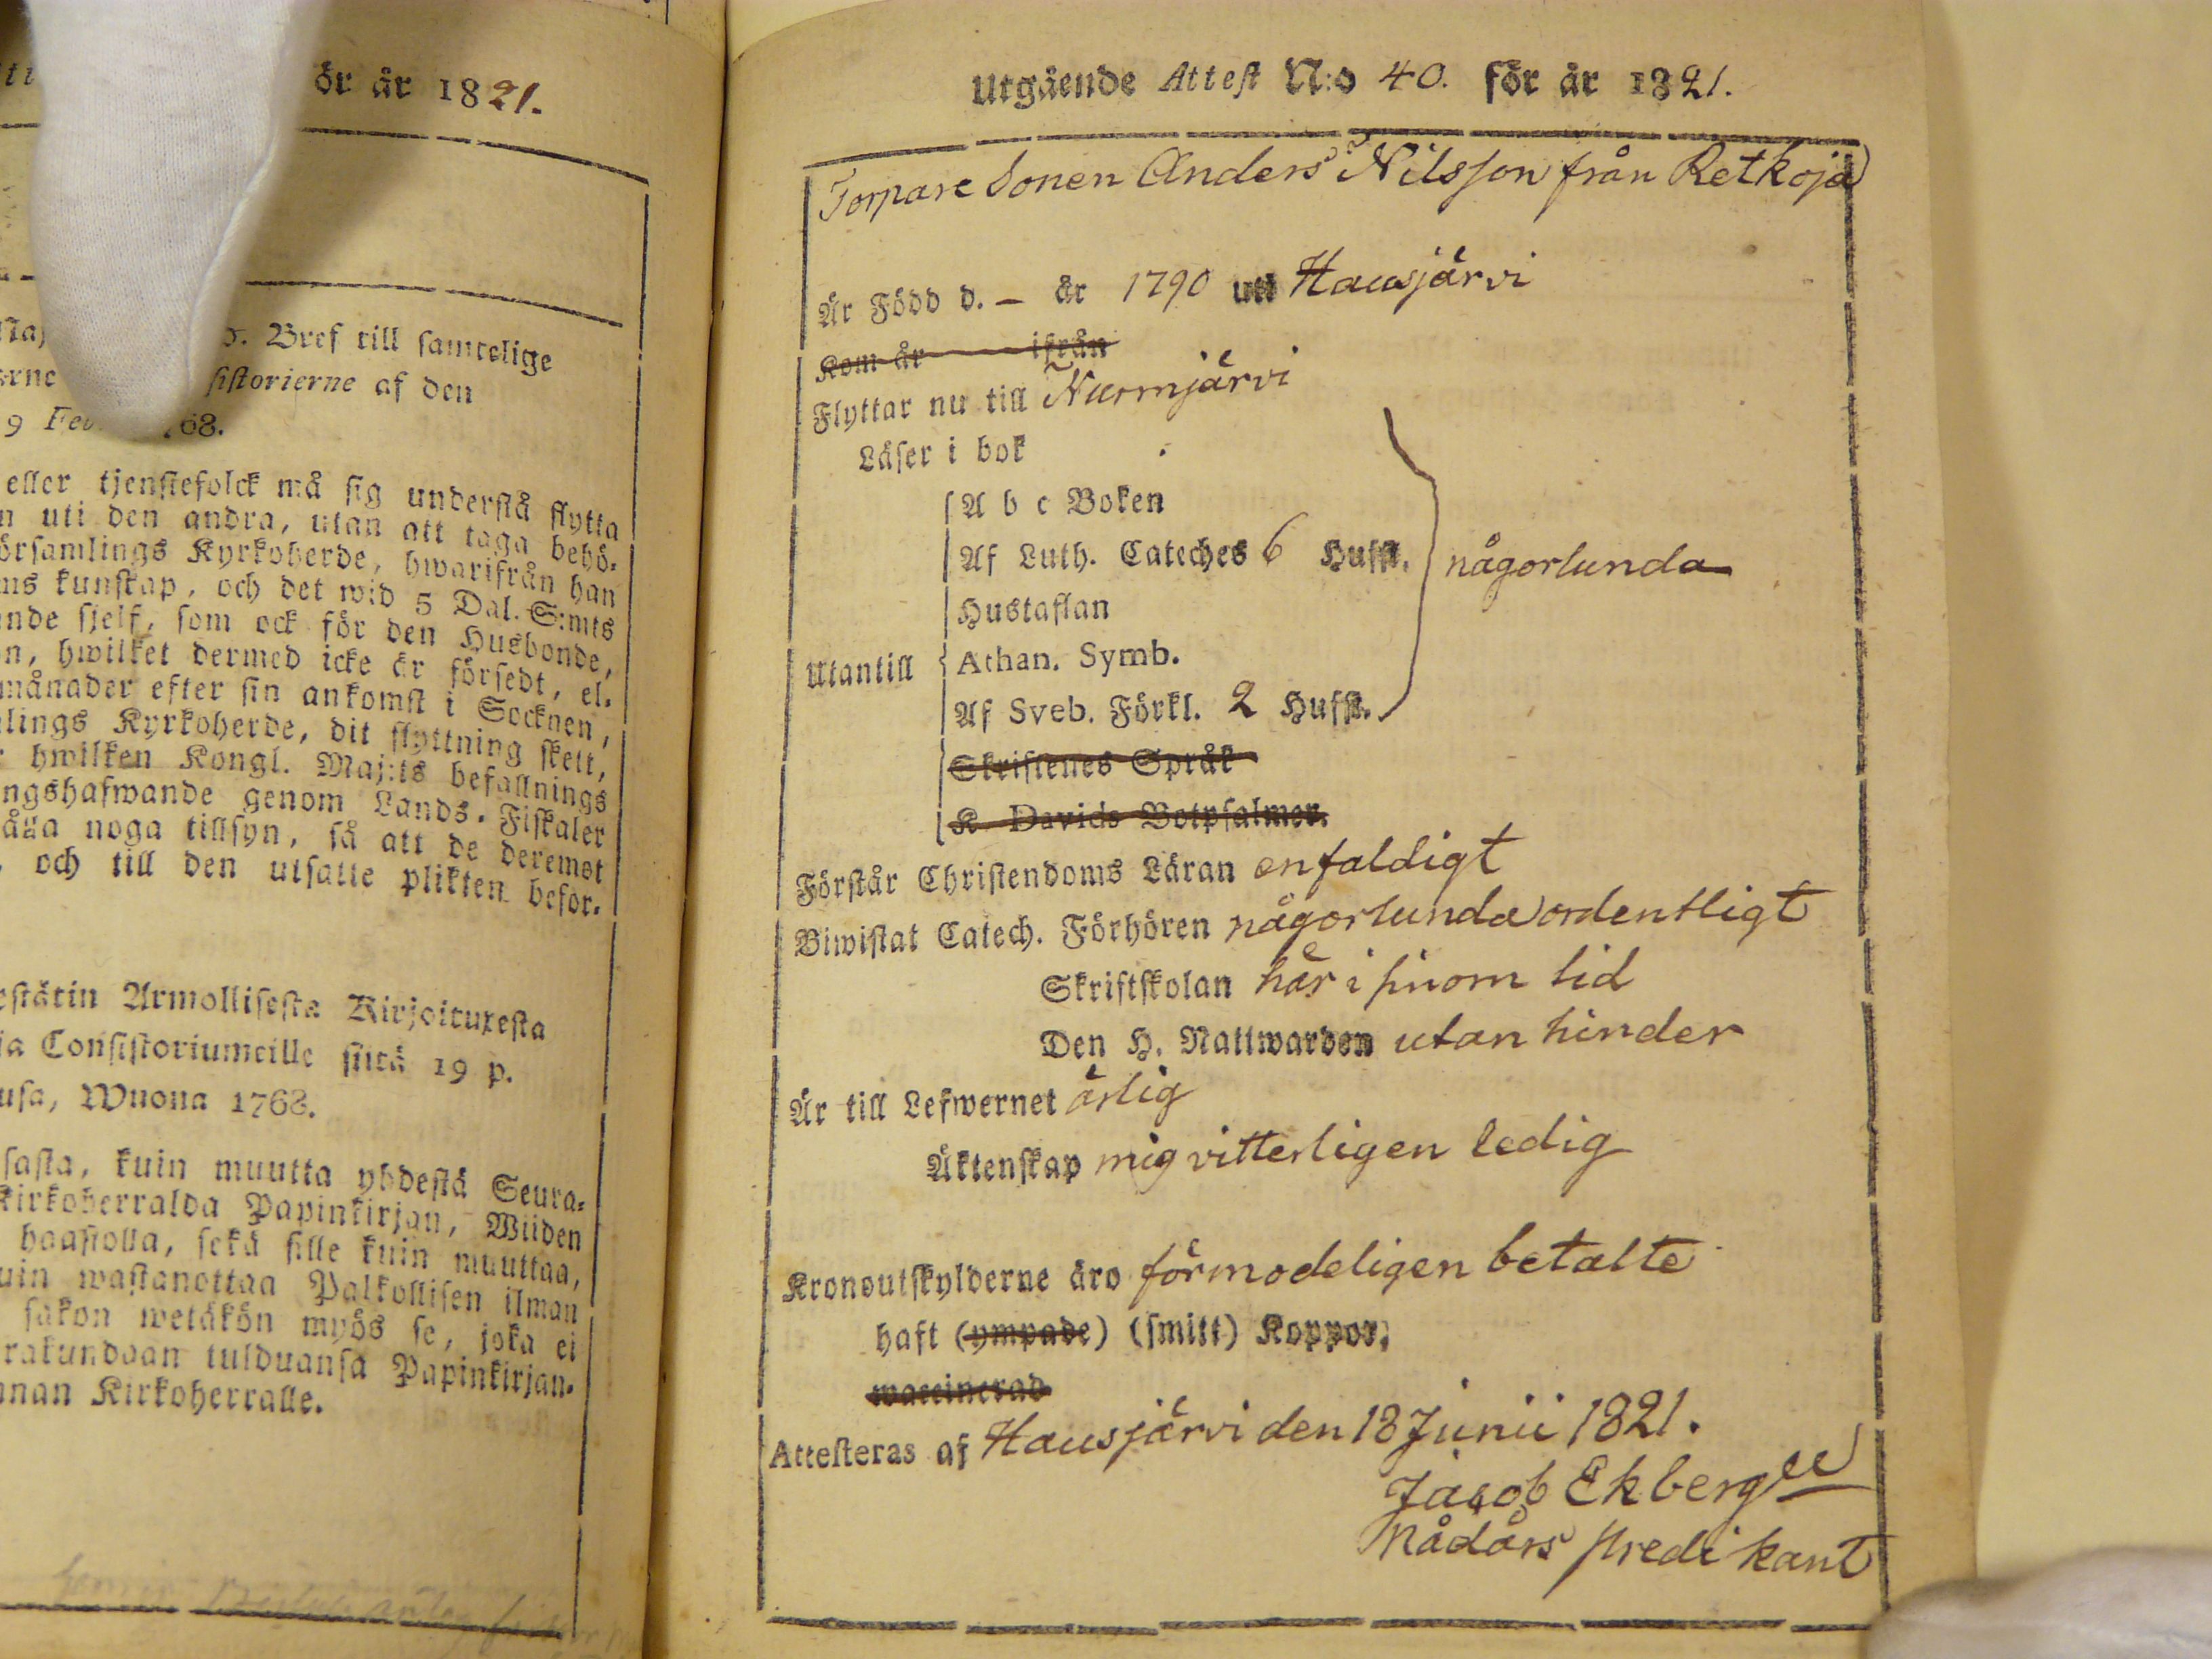 ör år 1821.
Bref till samtelige
sistorierne af den
9 68.
eller tjenstefolck må sig understå flytta
uti den andra, utan att taga behö-
örsamlings Kyrkoherde, hwarifrån han
ms kunskap, och det wid 5 Dal. S:mts
nde sjelf, som ock för den Husbonde,
n, hwilket dermed icke är försedt, el-
månader efter sin ankomst i Socknen,
lings Kyrkoherde, dit flyttning skett,
hwilken Kongl. Maj:ts befallnings
ngshafwande genom Lands-Fiskaler
noga tillsyn, så att de deremot
och till den utsatte plikten befor-
estätin Armollisesta Kirjoituxesta
ia Consistoriumeille siitä 19 p.
usa, Wuona 1768.
sasta, kuin muutta yhdestä Seura-
Kirkoherralda Papinkirjan, Wiiden
haastolla, sekä sille kuin muuttaa,
uin wastanottaa Palkollisen ilman
sakon wetäkön myös se, joka ei
rakundaan tulduansa Papinkirjan-
nnan Kirkoherralle.
Utgående Attest N:o 40. för år 1821.
Torpare Sonen Anders Nilsson från Retkoja
Är Född d. – år 1790 uti Hausjärvi
Kom år ifrån
Flyttar nu till Nurmjärvi
Läser i bok
A b c Boken
Af Luth. Cateches 6 Hufst. någorlunda
Hustaflan
Utantill Athan. Symb.
Af Sveb. Förkl. 2 Hufst.
Skriftenes Språk
K. Davids Botpsalmer.
Förstår Christendoms Läran enfaldigt
Biwistat Catech. Förhören någorlunda ordentligt
Skriftskolan här i sinom tid
Den H. Nattwarden utan hinder
Är till Lefwernet ärlig
Äktenskap mig vitterligen ledig
Kronoutskylderne äro förmodeligen betalte
haft (ympade) (smitt) Koppor,
waccinerad
Attesteras af Hausjärvi den 18 Junii 1821.
Jacob Ekberg
Nådårs predikant